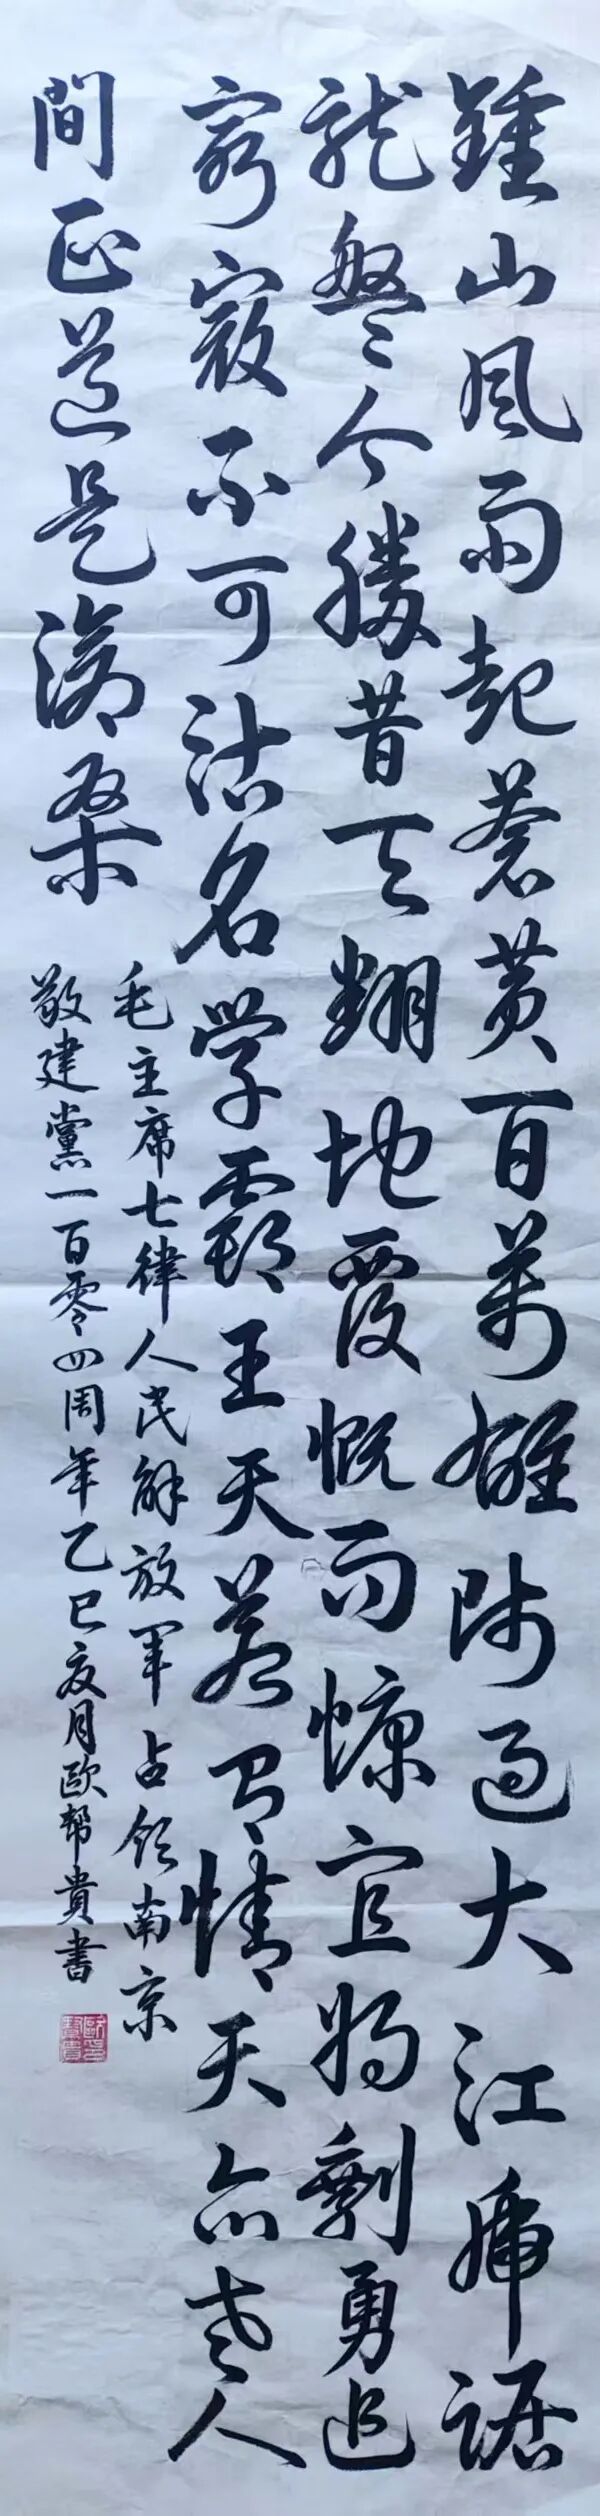 鍾山風雨起蒼黄百萬雄師過大江虎踞
龍盤今勝昔天翻地覆慨而慷宜將剩勇追
窮寇不可沽名學霸王天若有情天亦老人
間正道是滄桑
毛主席七律人民解放軍占领南京
敬建黨一百零四周年乙巳夜月歐幫貴書